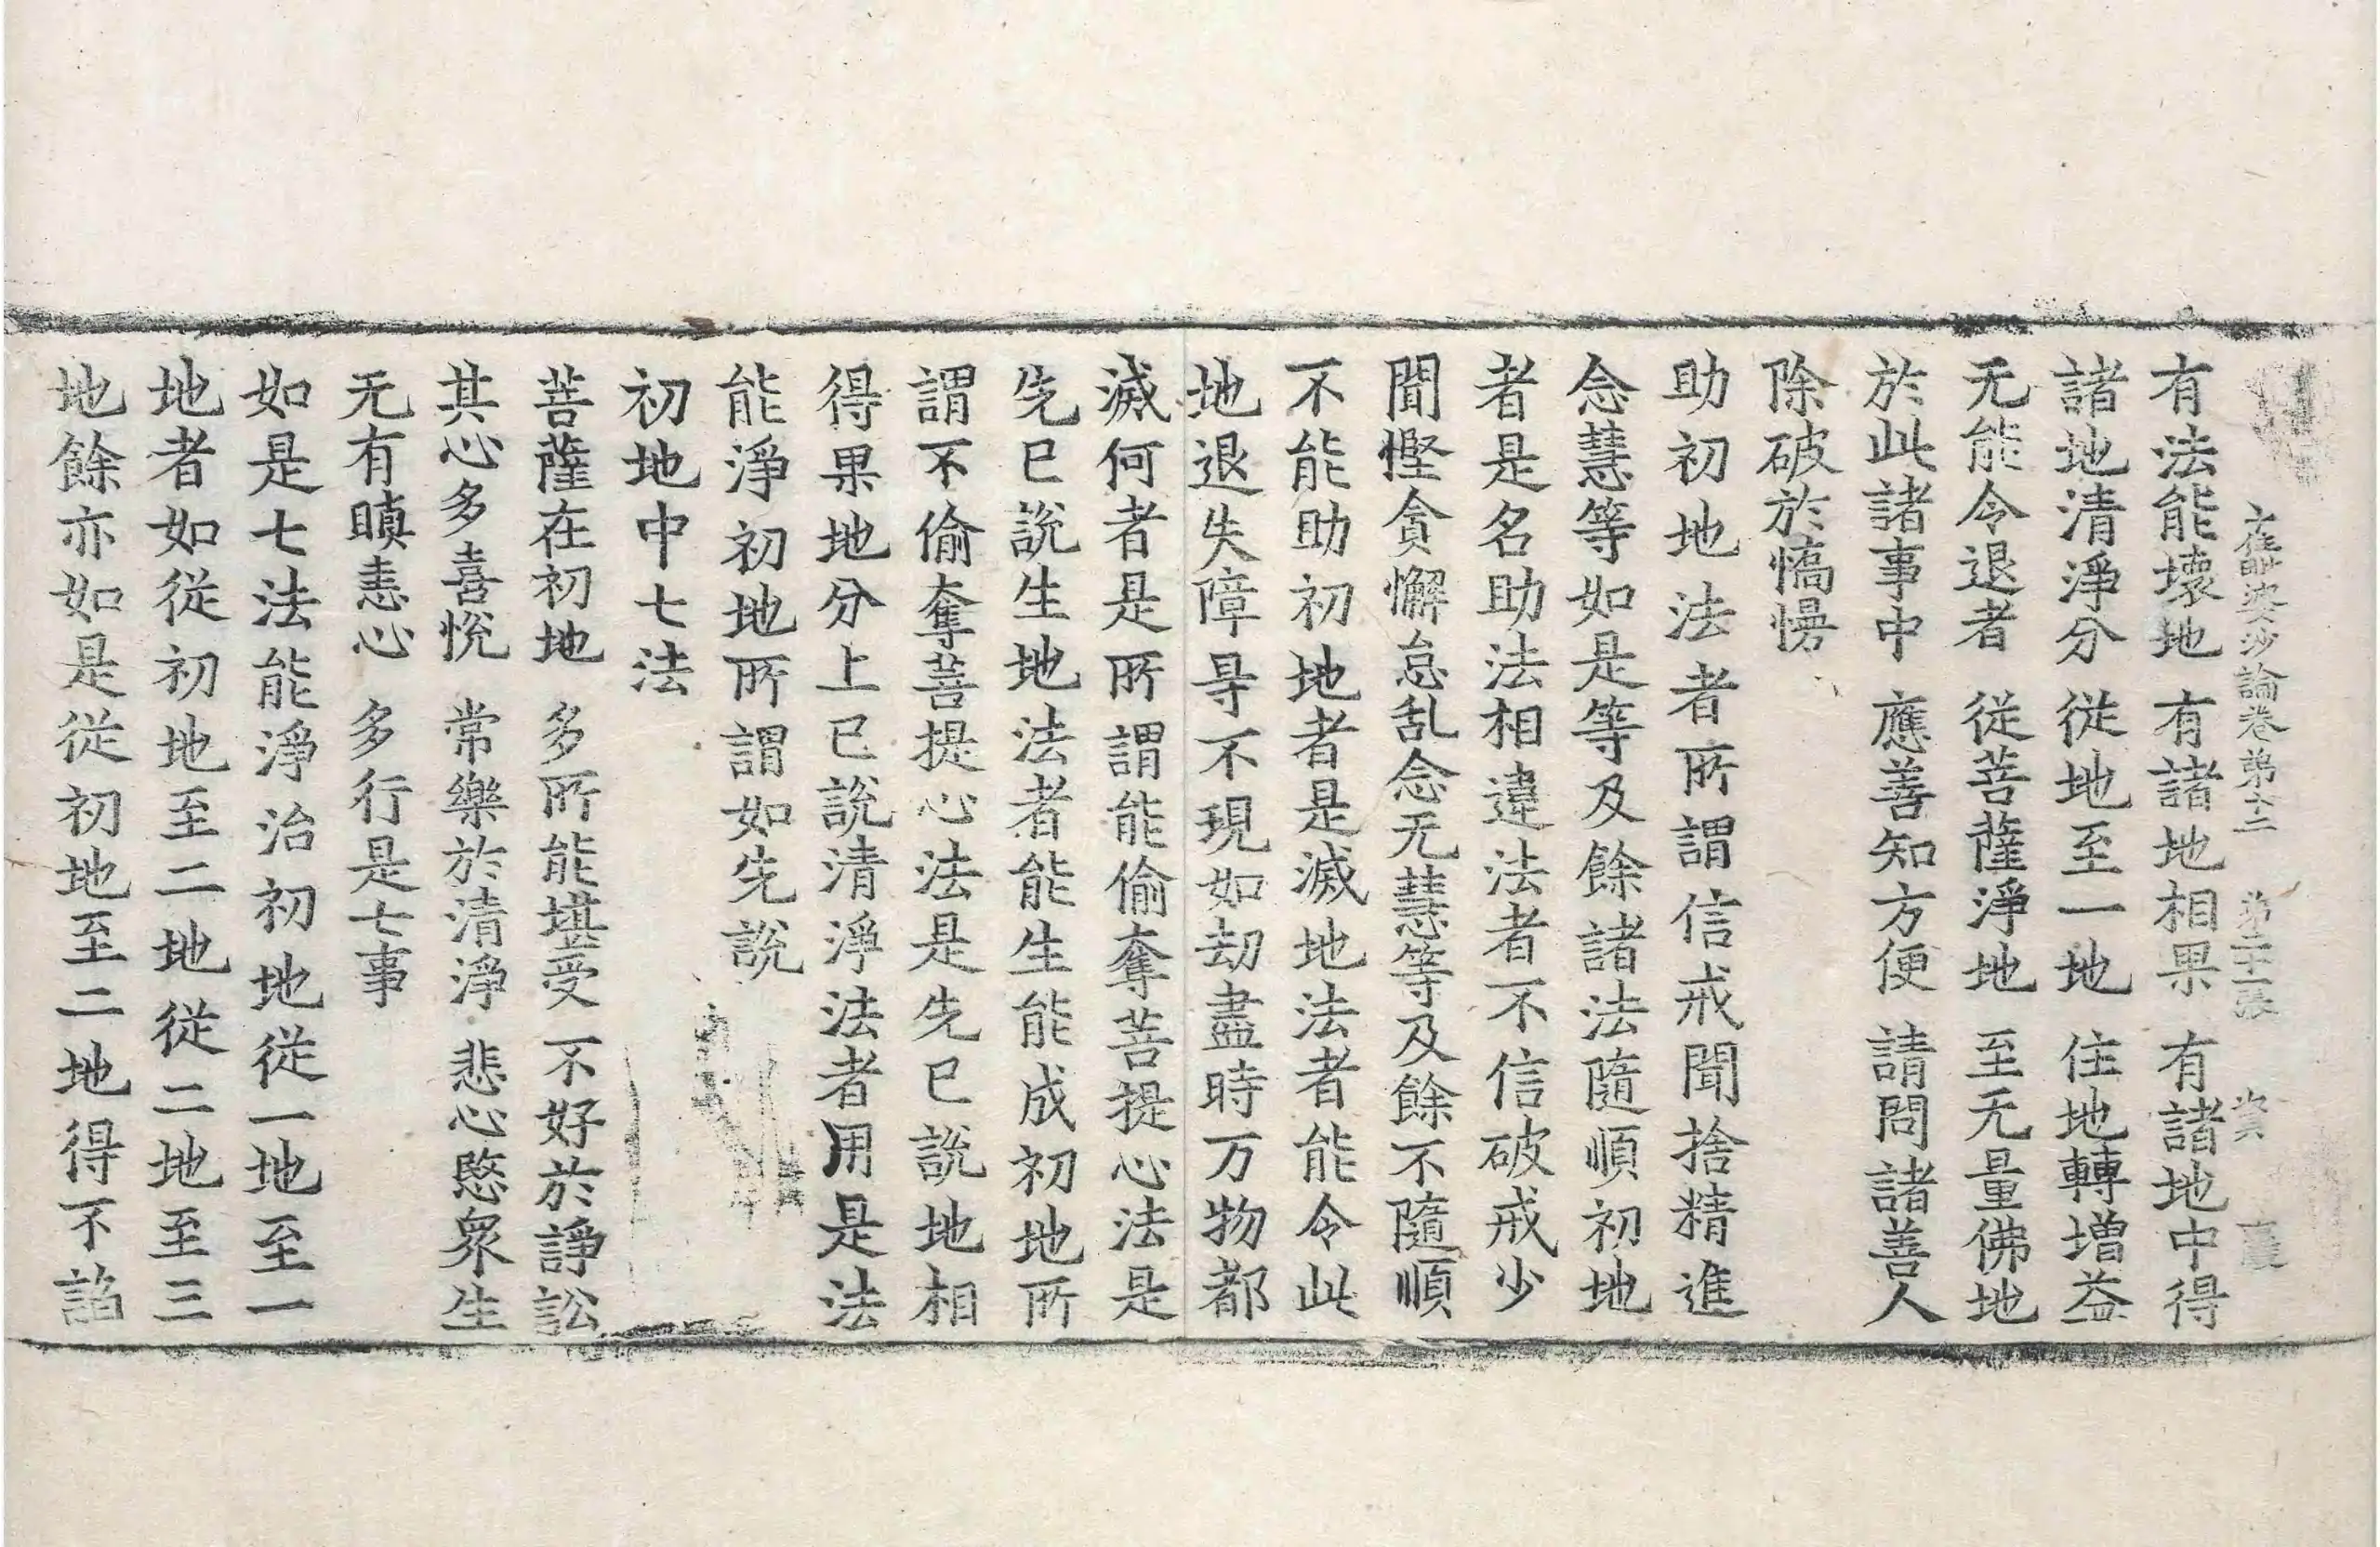 住毗婆沙論卷第十二 第二十一張 資
有法能壞地 有諸地相果 有諸地中得
諸地清淨分 從地至一地 住地轉增益
无能令退者 從菩薩淨地 至无量佛地
於此諸事中 應善知方便 請問諸善人
除破於憍慢
助初地法者所謂信戒聞捨精進
念慧等如是等及餘諸法隨順初地
者是名助法相違法者不信破戒少
聞慳貪懈怠乱念无慧等及餘不隨順
不能助初地者是滅地法者能令此
地退失障㝵不現如劫盡時万物都
滅何者是所謂能偷奪菩提心法是
先已說生地法者能生能成初地所
謂不偷奪菩提心法是先已說地相
得果地分上已說清淨法者用是法
能淨初地所謂如先說
初地中七法
菩薩在初地 多所能堪受 不好於諍訟
其心多喜悅 常樂於清淨 悲心愍眾生
无有瞋恚心 多行是七事
如是七法能淨治初地從一地至一
地者如從初地至二地從二地至三
地餘亦如是從初地至二地得不諂